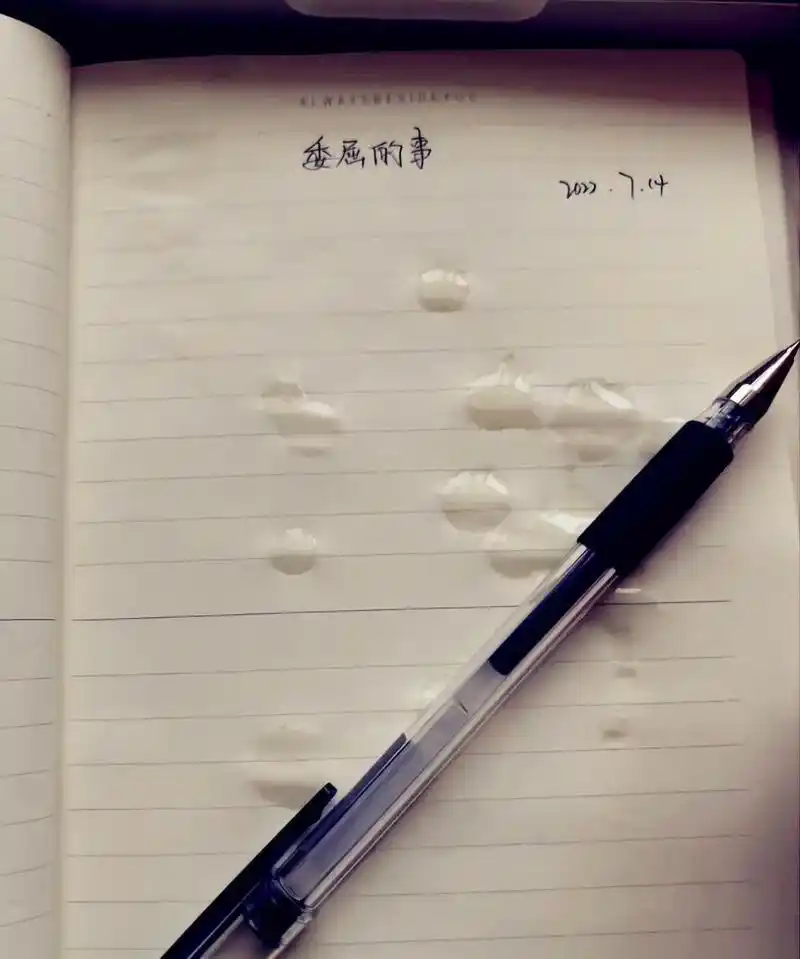 ALWAYSBESIDEYOU
委屈的事
2022.7.14